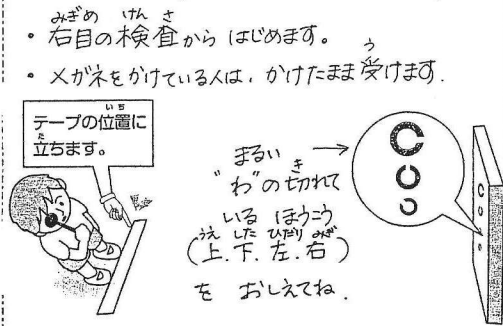 ・右目の検査から はじめます。
・メガネをかけている人は、かけたまま受けます.
テープの位置に
立ちます。
まるい
"わ"の切れて
いる ほうこう
(上.下.左.右)
を おしえてね.